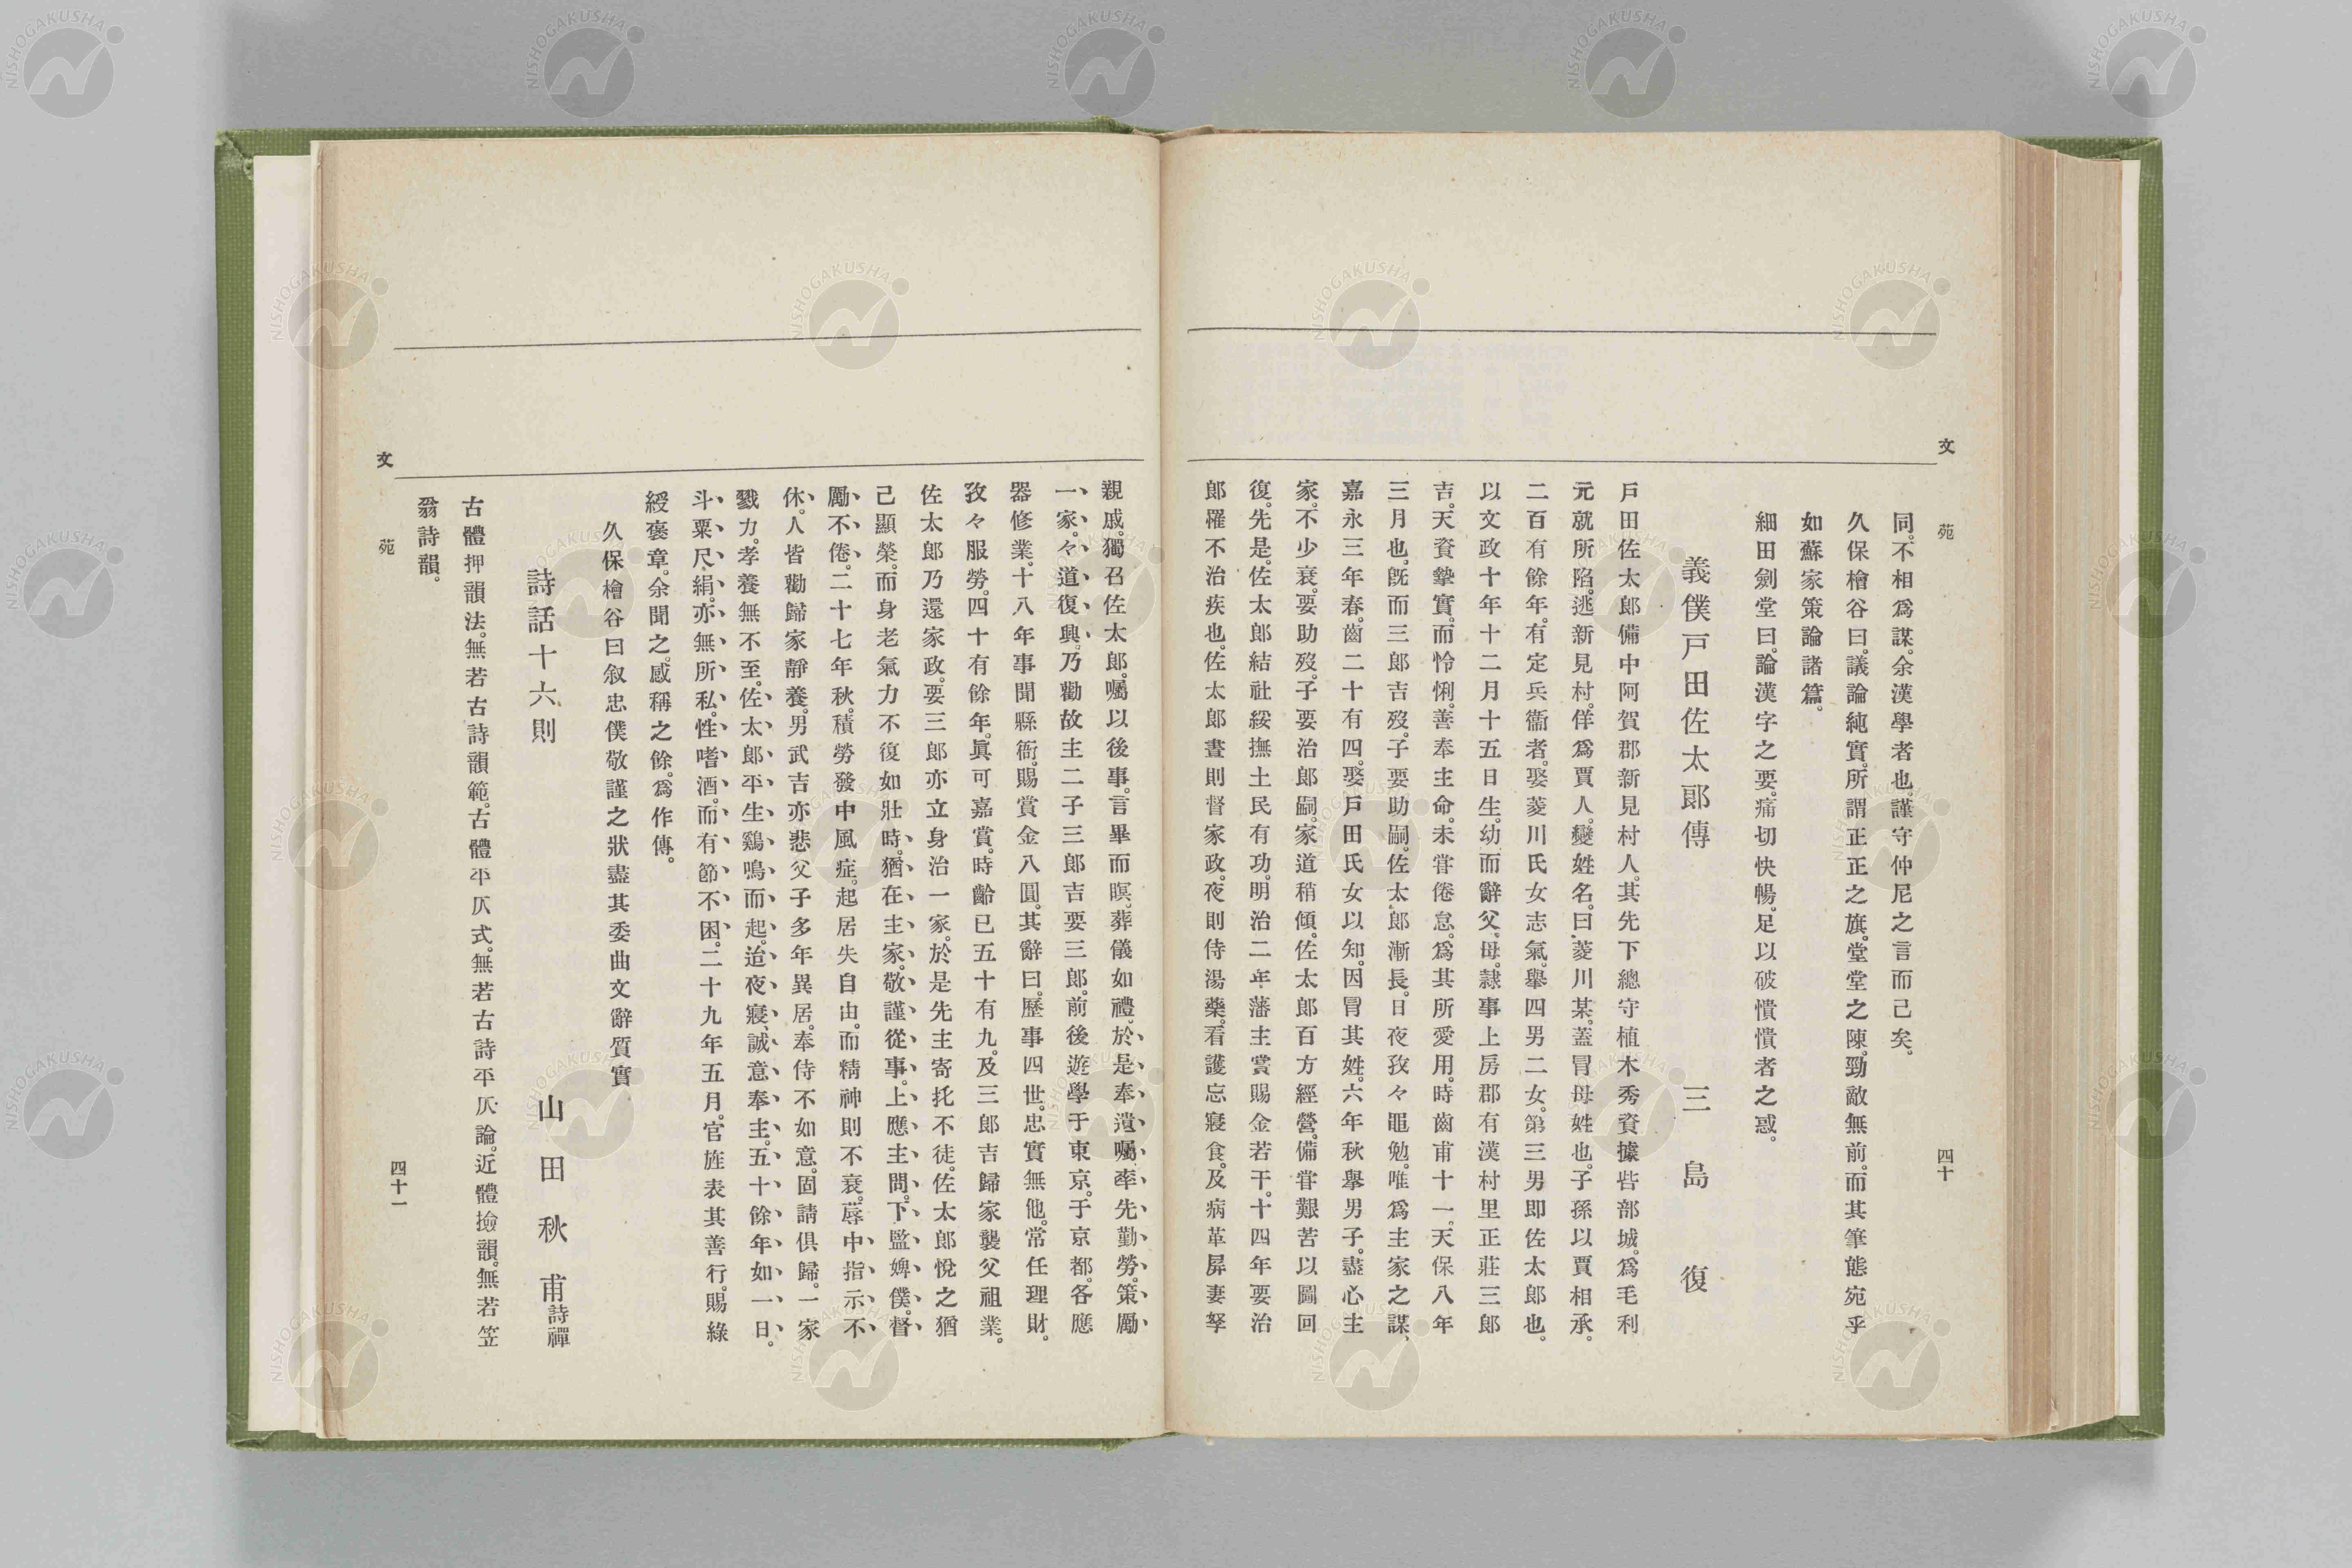 文苑
四十
同。不相爲謀。余漢學者也。謹守仲尼之言而己矣。
久保檜谷曰。議論純實。所謂正正之旗。堂堂之陳。勁敵無前。而其筆態宛乎
如蘇家策論諸篇。
細田劍堂曰。論漢字之要。痛切快暢。足以破憒憒者之惑。
義僕戸田佐太郎傳
三島復
戸田佐太郎備中阿賀郡新見村人。其先下總守植木秀資據呰部城。爲毛利
元就所陷。逃新見村。佯爲賈人。變姓名。曰菱川某。蓋冒母姓也。子孫以賈相承。
二百有餘年。有定兵衞者。娶菱川氏女志氣。擧四男二女。第三男即佐太郎也。
以文政十年十二月十五日生。幼而辭父母。隷事上房郡有漢村里正莊三郎
吉。天資摯實。而怜悧。善奉主命。未甞倦怠。爲其所愛用。時齒甫十一。天保八年
三月也。旣而三郎吉歿。子要助嗣。佐太郎漸長。日夜孜々黽勉。唯爲主家之謀、
嘉永三年春。齒二十有四。娶戸田氏女以知。因冒其姓。六年秋擧男子。盡心主
家。不少衰。要助歿。子要治郎嗣。家道稍傾。佐太郎百方經營。備甞艱苦以圖回
復。先是。佐太郎結社綏撫土民有功。明治二年藩主賞賜金若干。十四年要治
郎罹不治疾也。佐太郎晝則督家政。夜則侍湯藥。看護忘寢食。及病革屏妻孥
親戚。獨召佐太郎。囑以後事。言畢而瞑。葬儀如禮。於是奉遺囑。率先勤勞。策勵
一家。々道復興。乃勸故主二子三郎吉要三郎。前後遊學于東京。于京都。各應
器修業。十八年事聞縣衙。賜賞金八圓。其辭曰。歷事四世。忠實無他。常任理財。
孜々服勞。四十有餘年。眞可嘉賞。時齡已五十有九。及三郎吉歸家襲父祖業。
佐太郎乃還家政。要三郎亦立身治一家。於是先主寄托不徒。佐太郎悅之猶
己顯榮。而身老氣力不復如壯時。猶在主家。敬謹從事。上應主問。下監婢僕。督
勵不倦。二十七年秋。積勞發中風症。起居失自由。而精神則不衰。蓐中指示不
休。人皆勸歸家靜養。男武吉亦悲父子多年異居。奉侍不如意。固請俱歸。一家
戮力。孝養無不至。佐太郎平生鷄鳴而起。迨夜寢、誠意奉主。五十餘年如一日。
斗粟尺絹。亦無所私。性嗜酒。而有節不困。二十九年五月。官旌表其善行。賜綠
綬褒章。余聞之。感稱之餘。爲作傳。
久保檜谷曰叙忠僕敬謹之狀盡其委曲文辭質實
詩話十六則
山田秋甫 詩禪
古體押韻法。無若古詩韻範。古體平仄式。無若古詩平仄論。近體撿韻。無若笠
翁詩韻。
文苑
四十一
NISHOGAKUSHA